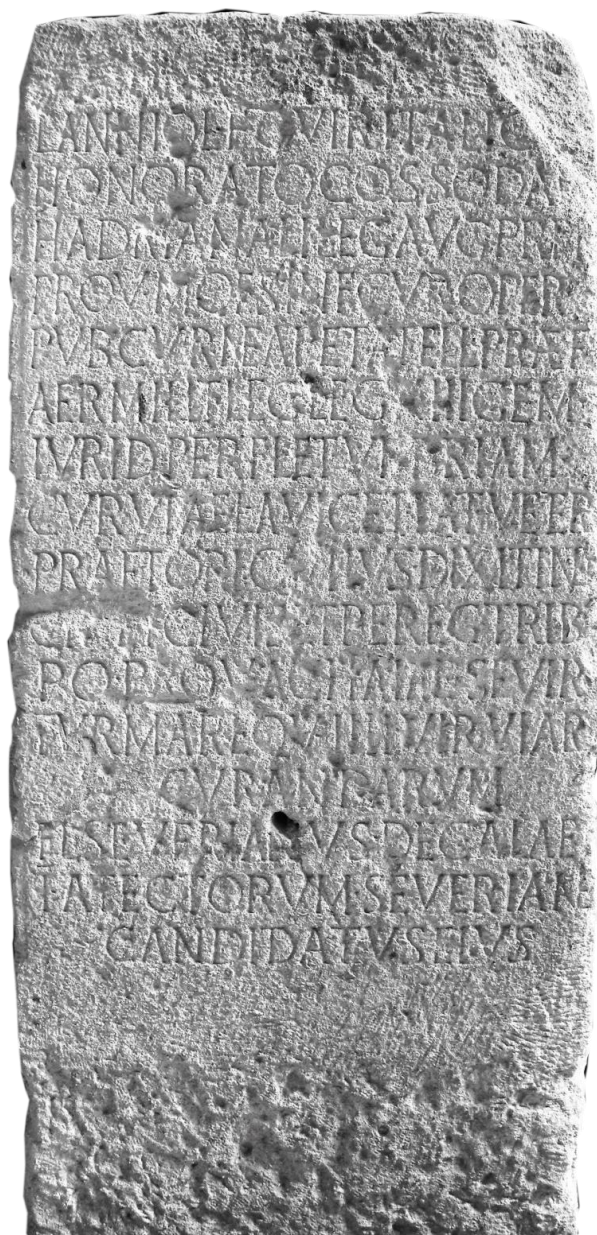 L ANNIO L F QVIR ITALICO
HONORATO COS SODAL
HADRIANALI LEG AVG PR PR
PROV M OES INF CVR OPER
PVB CVR NEAPLET ATELL PRAEF
AER MILIT LEG LEG XIII GEM ET
IVRID PER FL ET VMBRIAM
CVR VIAE LAVICET LAT VETER
PRAETORI QVI IVS DIXIT INT
CIVES ET PEREG TRIB
PQ PROV ACHAIAE SEVIR
TVRMAR EQVIT IIIIVIR VIAR
CVRANDARVM
FL SEVERIANVS DEC ALAE
I ATECTORVM SEVERIANE
CANDIDATVS EIVS